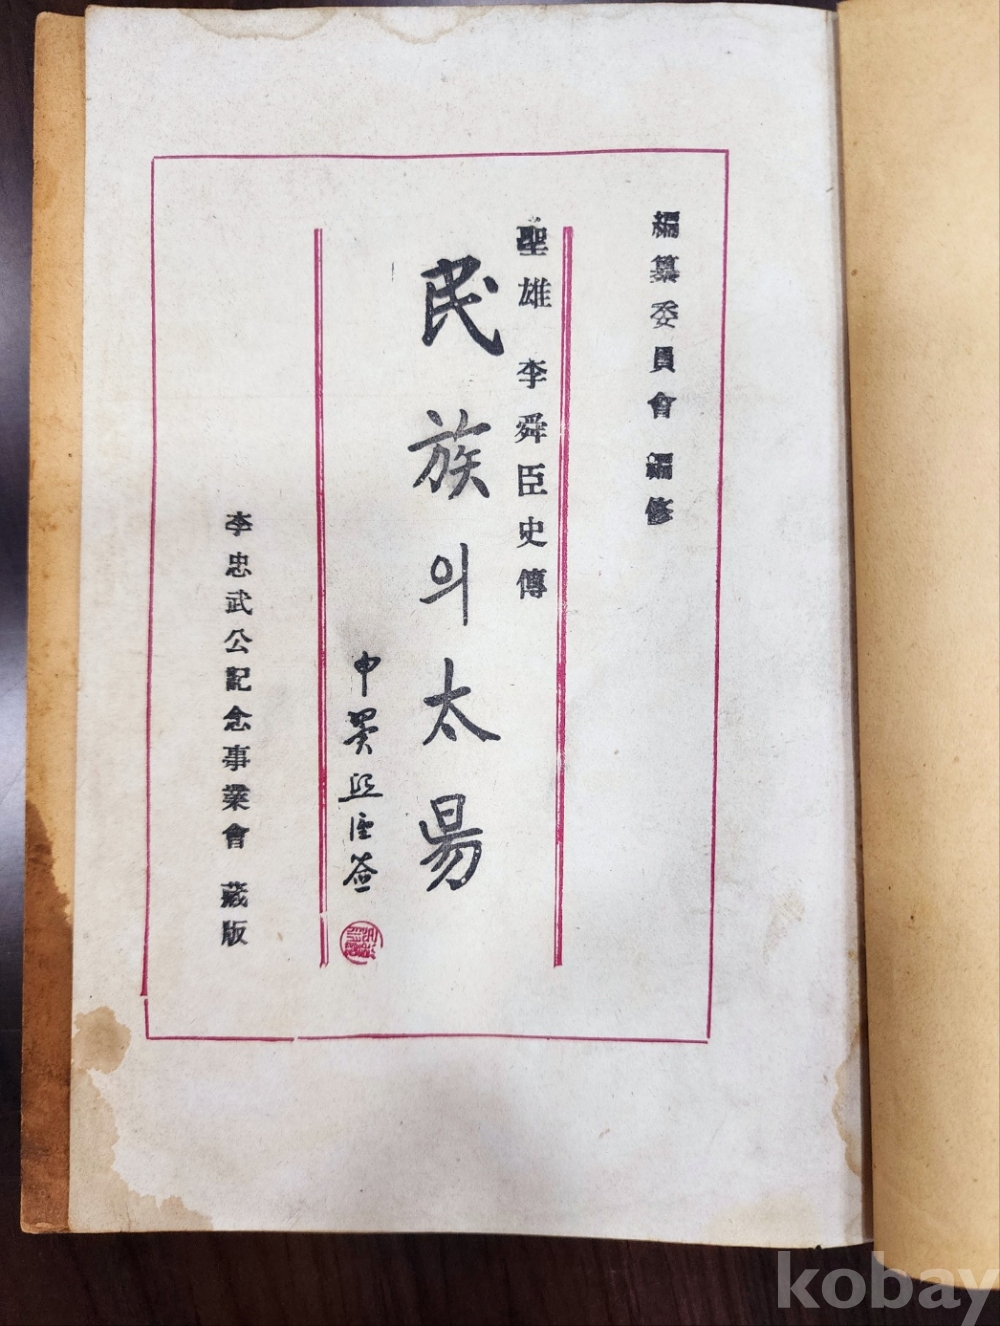 編纂委員會 編修
聖雄 李舜臣史傳
民族의太昜
申翼熙
李忠武公記念事業會 藏版
kobay